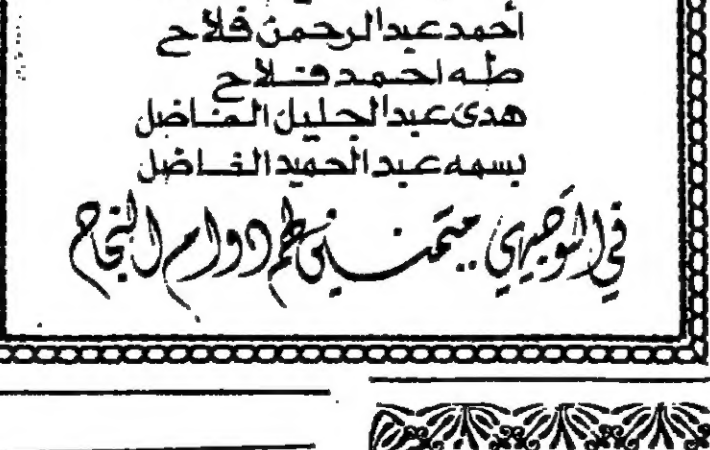 أحمد عبد الرحمن فلاح
طه احمد فلاح
هدى عبد الجليل الفاضل
بسمه عبد الحميد الفاضل
في التوجيهي متمنين لهم دوام النجاح